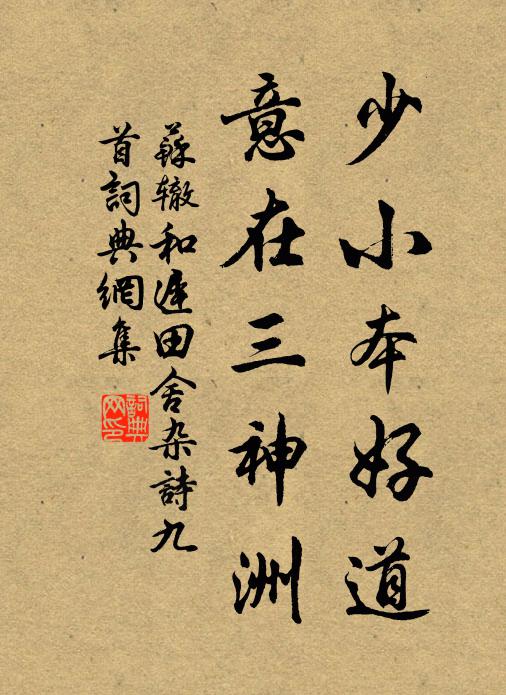 少小本好道
意在三神洲
蘇辙和遲田舍杂詩九
首詞典網集
詞典网印